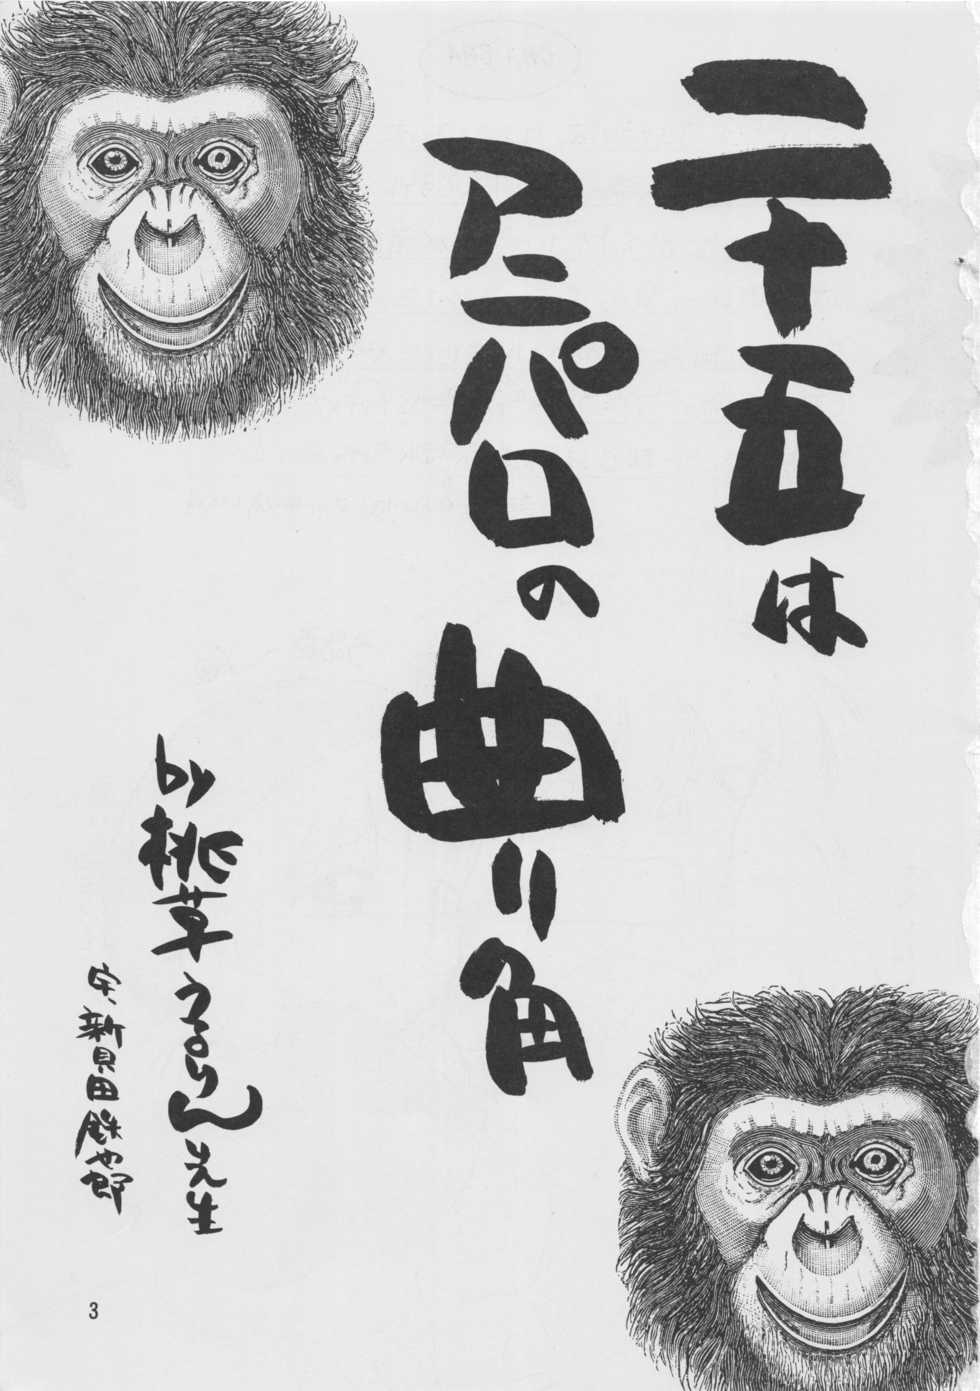 二十五は
アニパロの曲り角
by 桃草うろりん先生
字、新貝田鉄也郎
3